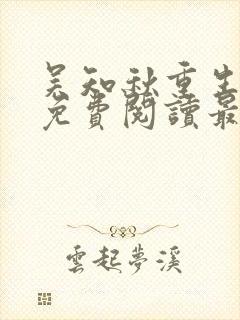 吴知秋重生
免費閱讀最
雲起夢溪